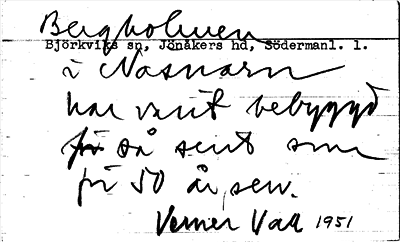 Bergholmen
Björkviks sn, Jönåkers hd, Södermanl. l.
i Nasnarn
har varit bebyggd
så sent som
för 50 år sen.
Verner Vall 1951